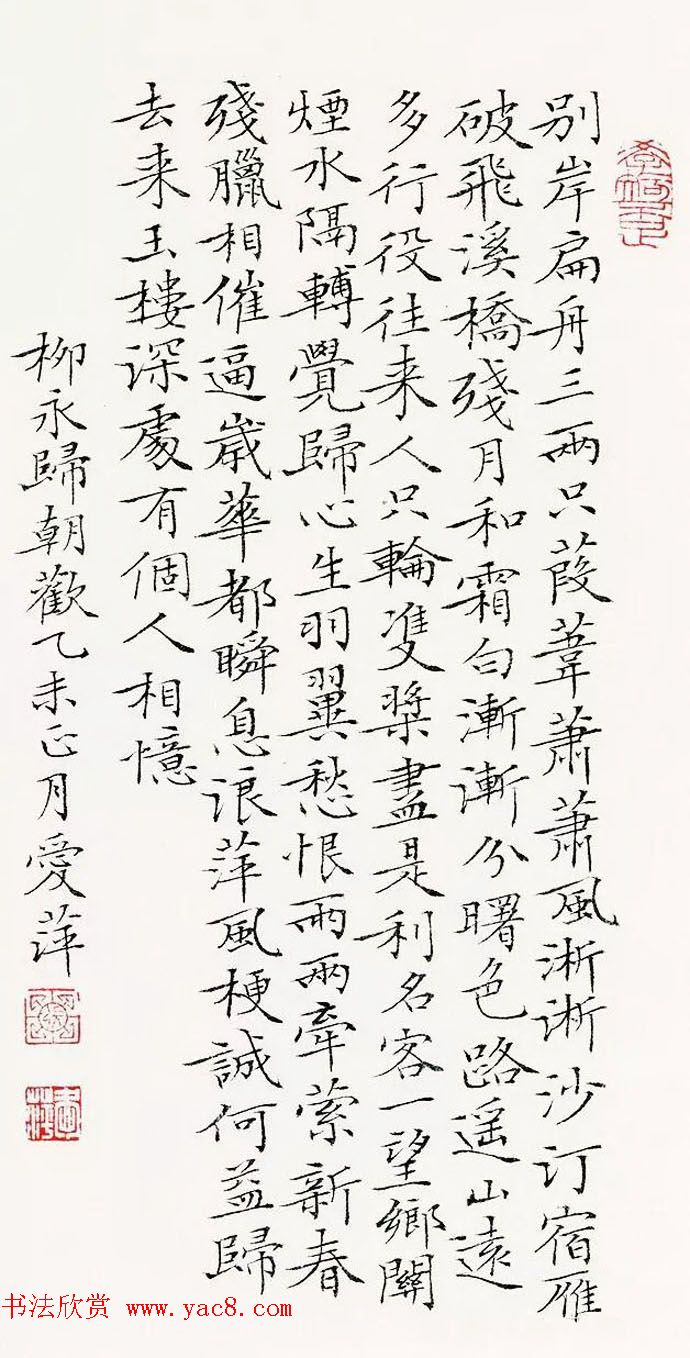 別岸扁舟三兩只葭葦蕭蕭風淅淅沙汀宿雁
破飛溪橋殘月和霜白漸漸分曙色路遥山遠
多行役往来人只輪雙槳盡是利名客一望鄉關
煙水隔轉覺歸心生羽翼愁恨兩兩牽縈新春
殘臘相催逼歲華都瞬息浪萍風梗誠何益歸
去来玉樓深處有個人相憶
柳永歸朝歡乙未正月愛萍
书法欣赏 www.yac8.com